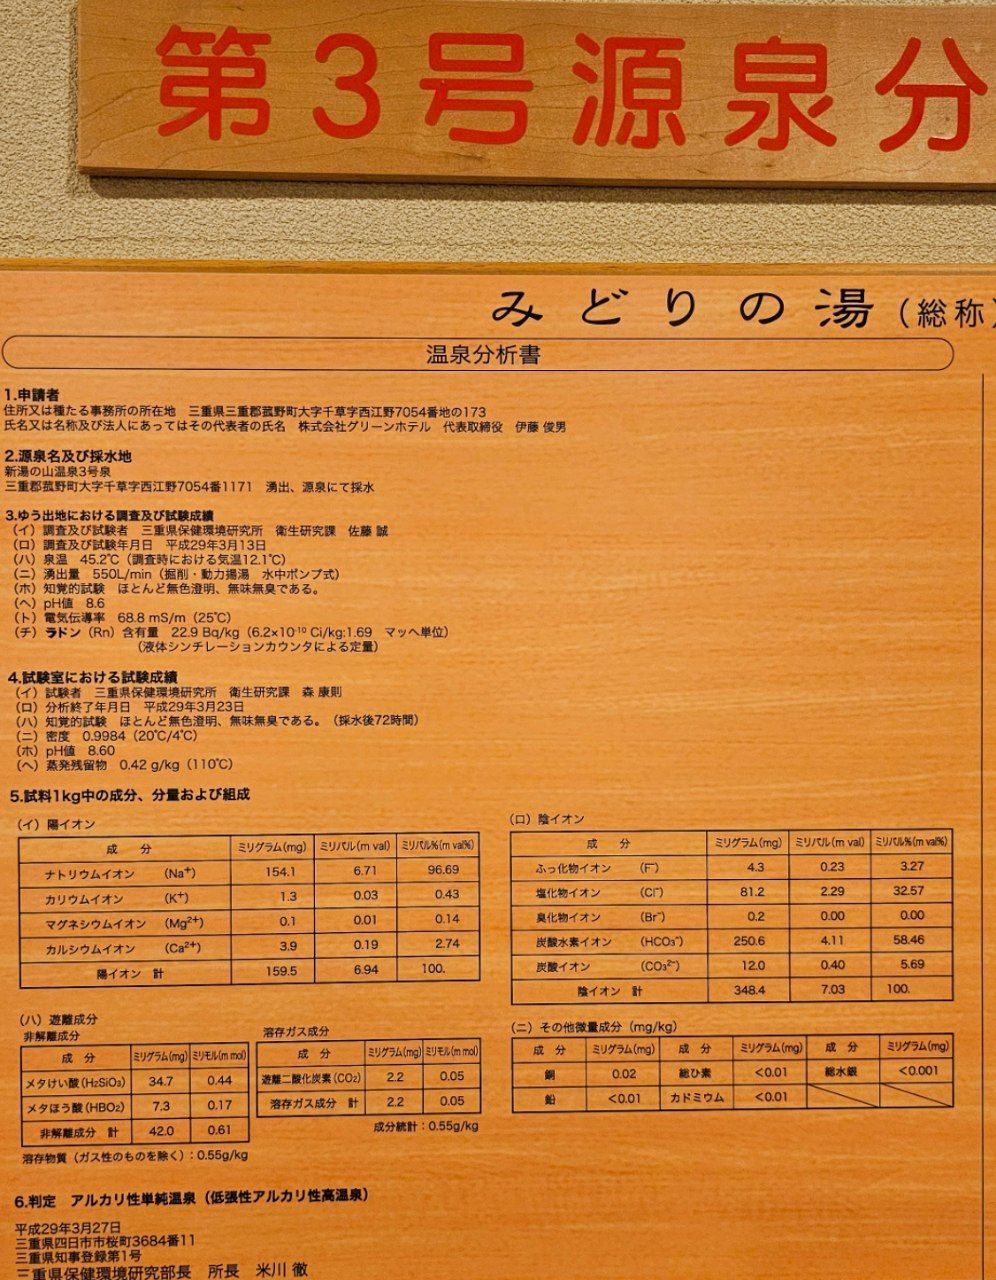 第3号源泉分
みどりの湯(総称)
温泉分析書
1.申請者
住所又は種たる事務所の所在地 三重県三重郡菰野町大字千草字西江野7054番地の173
氏名又は名称及び法人にあってはその代表者の氏名 株式会社グリーンホテル 代表取締役 伊藤 俊男
2.源泉名及び採水地
新湯の山温泉3号泉
三重郡菰野町大字千草字西江野7054番1171 湧出、源泉にて採水
3.ゆう出地における調査及び試験成績
(イ)調査及び試験者 三重県保健環境研究所 衛生研究課 佐藤 誠
(ロ)調査及び試験年月日 平成29年3月13日
(ハ)泉温 45.2℃(調査時における気温12.1℃)
(ニ)湧出量 550L/min(掘削・動力揚湯 水中ポンプ式)
(ホ)知覚的試験 ほとんど無色澄明、無味無臭である。
(ヘ)pH値 8.6
(ト)電気伝導率 68.8 mS/m(25℃)
(チ)ラドン(Rn)含有量 22.9 Bq/kg(6.2×10⁻¹⁰ Ci/kg:1.69 マッヘ単位)
(液体シンチレーションカウンタによる定量)
4.試験室における試験成績
(イ)試験者 三重県保健環境研究所 衛生研究課 森 康則
(ロ)分析終了年月日 平成29年3月23日
(ハ)知覚的試験 ほとんど無色澄明、無味無臭である。(採水後72時間)
(ニ)密度 0.9984(20℃/4℃)
(ホ)pH値 8.60
(ヘ)蒸発残留物 0.42 g/kg(110℃)
5.試料1kg中の成分、分量および組成
(イ)陽イオン
成 分 ミリグラム(mg) ミリバル(m val) ミリバル%(m val%)
ナトリウムイオン (Na⁺) 154.1 6.71 96.69
カリウムイオン (K⁺) 1.3 0.03 0.43
マグネシウムイオン (Mg²⁺) 0.1 0.01 0.14
カルシウムイオン (Ca²⁺) 3.9 0.19 2.74
陽イオン 計 159.5 6.94 100.
(ロ)陰イオン
成 分 ミリグラム(mg) ミリバル(m val) ミリバル%(m val%)
ふっ化物イオン (F⁻) 4.3 0.23 3.27
塩化物イオン (Cl⁻) 81.2 2.29 32.57
臭化物イオン (Br⁻) 0.2 0.00 0.00
炭酸水素イオン (HCO₃⁻) 250.6 4.11 58.46
炭酸イオン (CO₃²⁻) 12.0 0.40 5.69
陰イオン 計 348.4 7.03 100.
(ハ)遊離成分
非解離成分
成 分 ミリグラム(mg) ミリモル(m mol)
メタけい酸(H₂SiO₃) 34.7 0.44
メタほう酸(HBO₂) 7.3 0.17
非解離成分 計 42.0 0.61
溶存物質(ガス性のものを除く):0.55g/kg
溶存ガス成分
成 分 ミリグラム(mg) ミリモル(m mol)
遊離二酸化炭素(CO₂) 2.2 0.05
溶存ガス成分 計 2.2 0.05
成分統計:0.55g/kg
(ニ)その他微量成分(mg/kg)
成 分 ミリグラム(mg) 成 分 ミリグラム(mg) 成 分 ミリグラム(mg)
銅 0.02 総ひ素 <0.01 総水銀 <0.001
鉛 <0.01 カドミウム <0.01
6.判定 アルカリ性単純温泉(低張性アルカリ性高温泉)
平成29年3月27日
三重県四日市市桜町3684番11
三重県知事登録第1号
三重県保健環境研究部長 所長 米川 徹